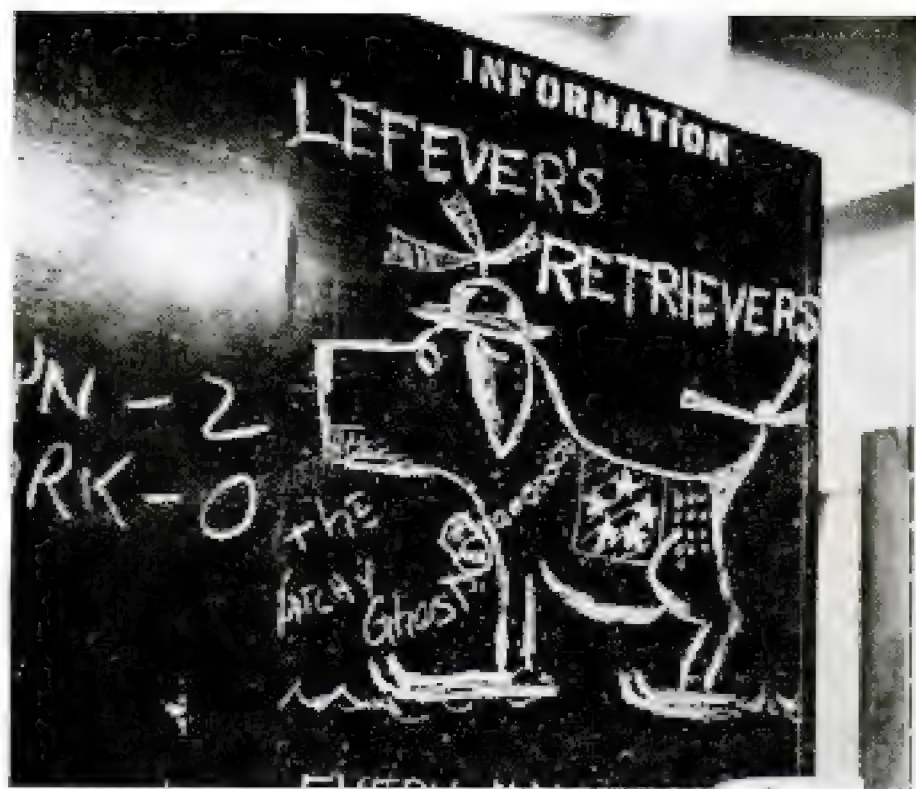 INFORMATION
LEFEVER'S
RETRIEVERS
N - 2
RK - 0
The
Ghost